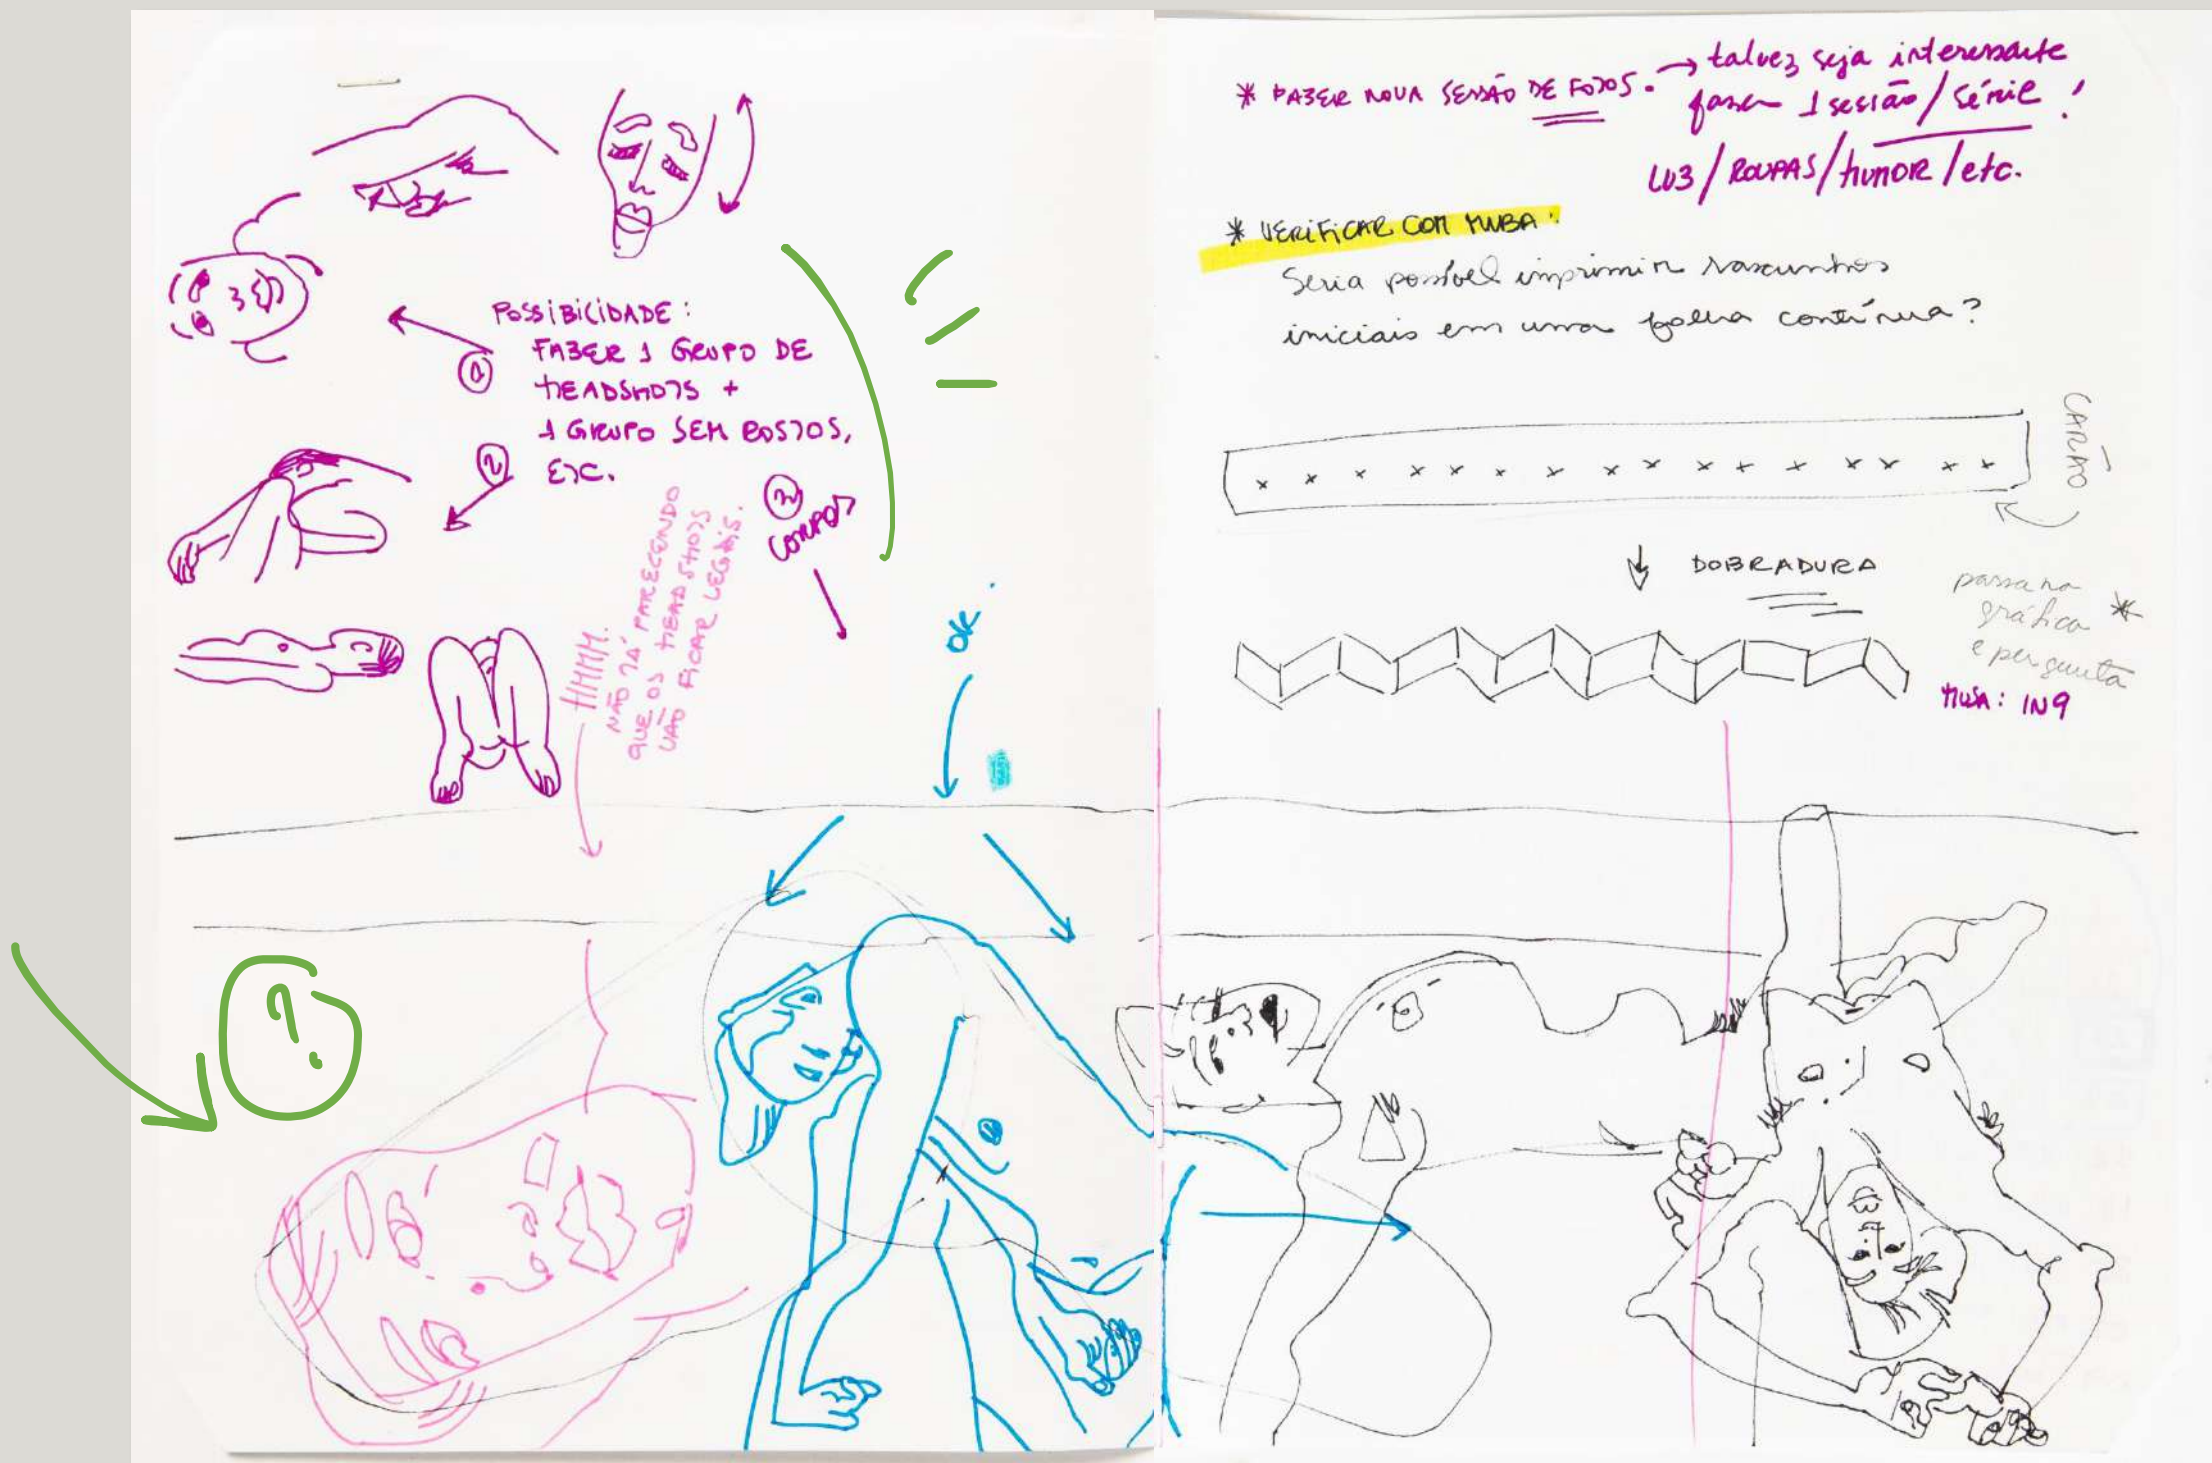 POSSIBILIDADE:
FAZER 1 GRUPO DE
HEADSHOTS +
1 GRUPO SEM ROSTOS,
ETC.
1
2
3
CORPOS
HMMM.
NÃO TÁ PARECENDO
QUE OS HEADSHOTS
VÃO FICAR LEGAIS.
OK.
?
* FAZER NOVA SESSÃO DE FOTOS. → talvez seja interessante
fazer 1 sessão/série!
LUZ/ROUPAS/HUMOR/etc.
* VERIFICAR COM MUBA:
Seria possível imprimir rascunhos
iniciais em uma folha contínua?
CARTÃO
↓ DOBRADURA
passa na
gráfica *
e pergunta